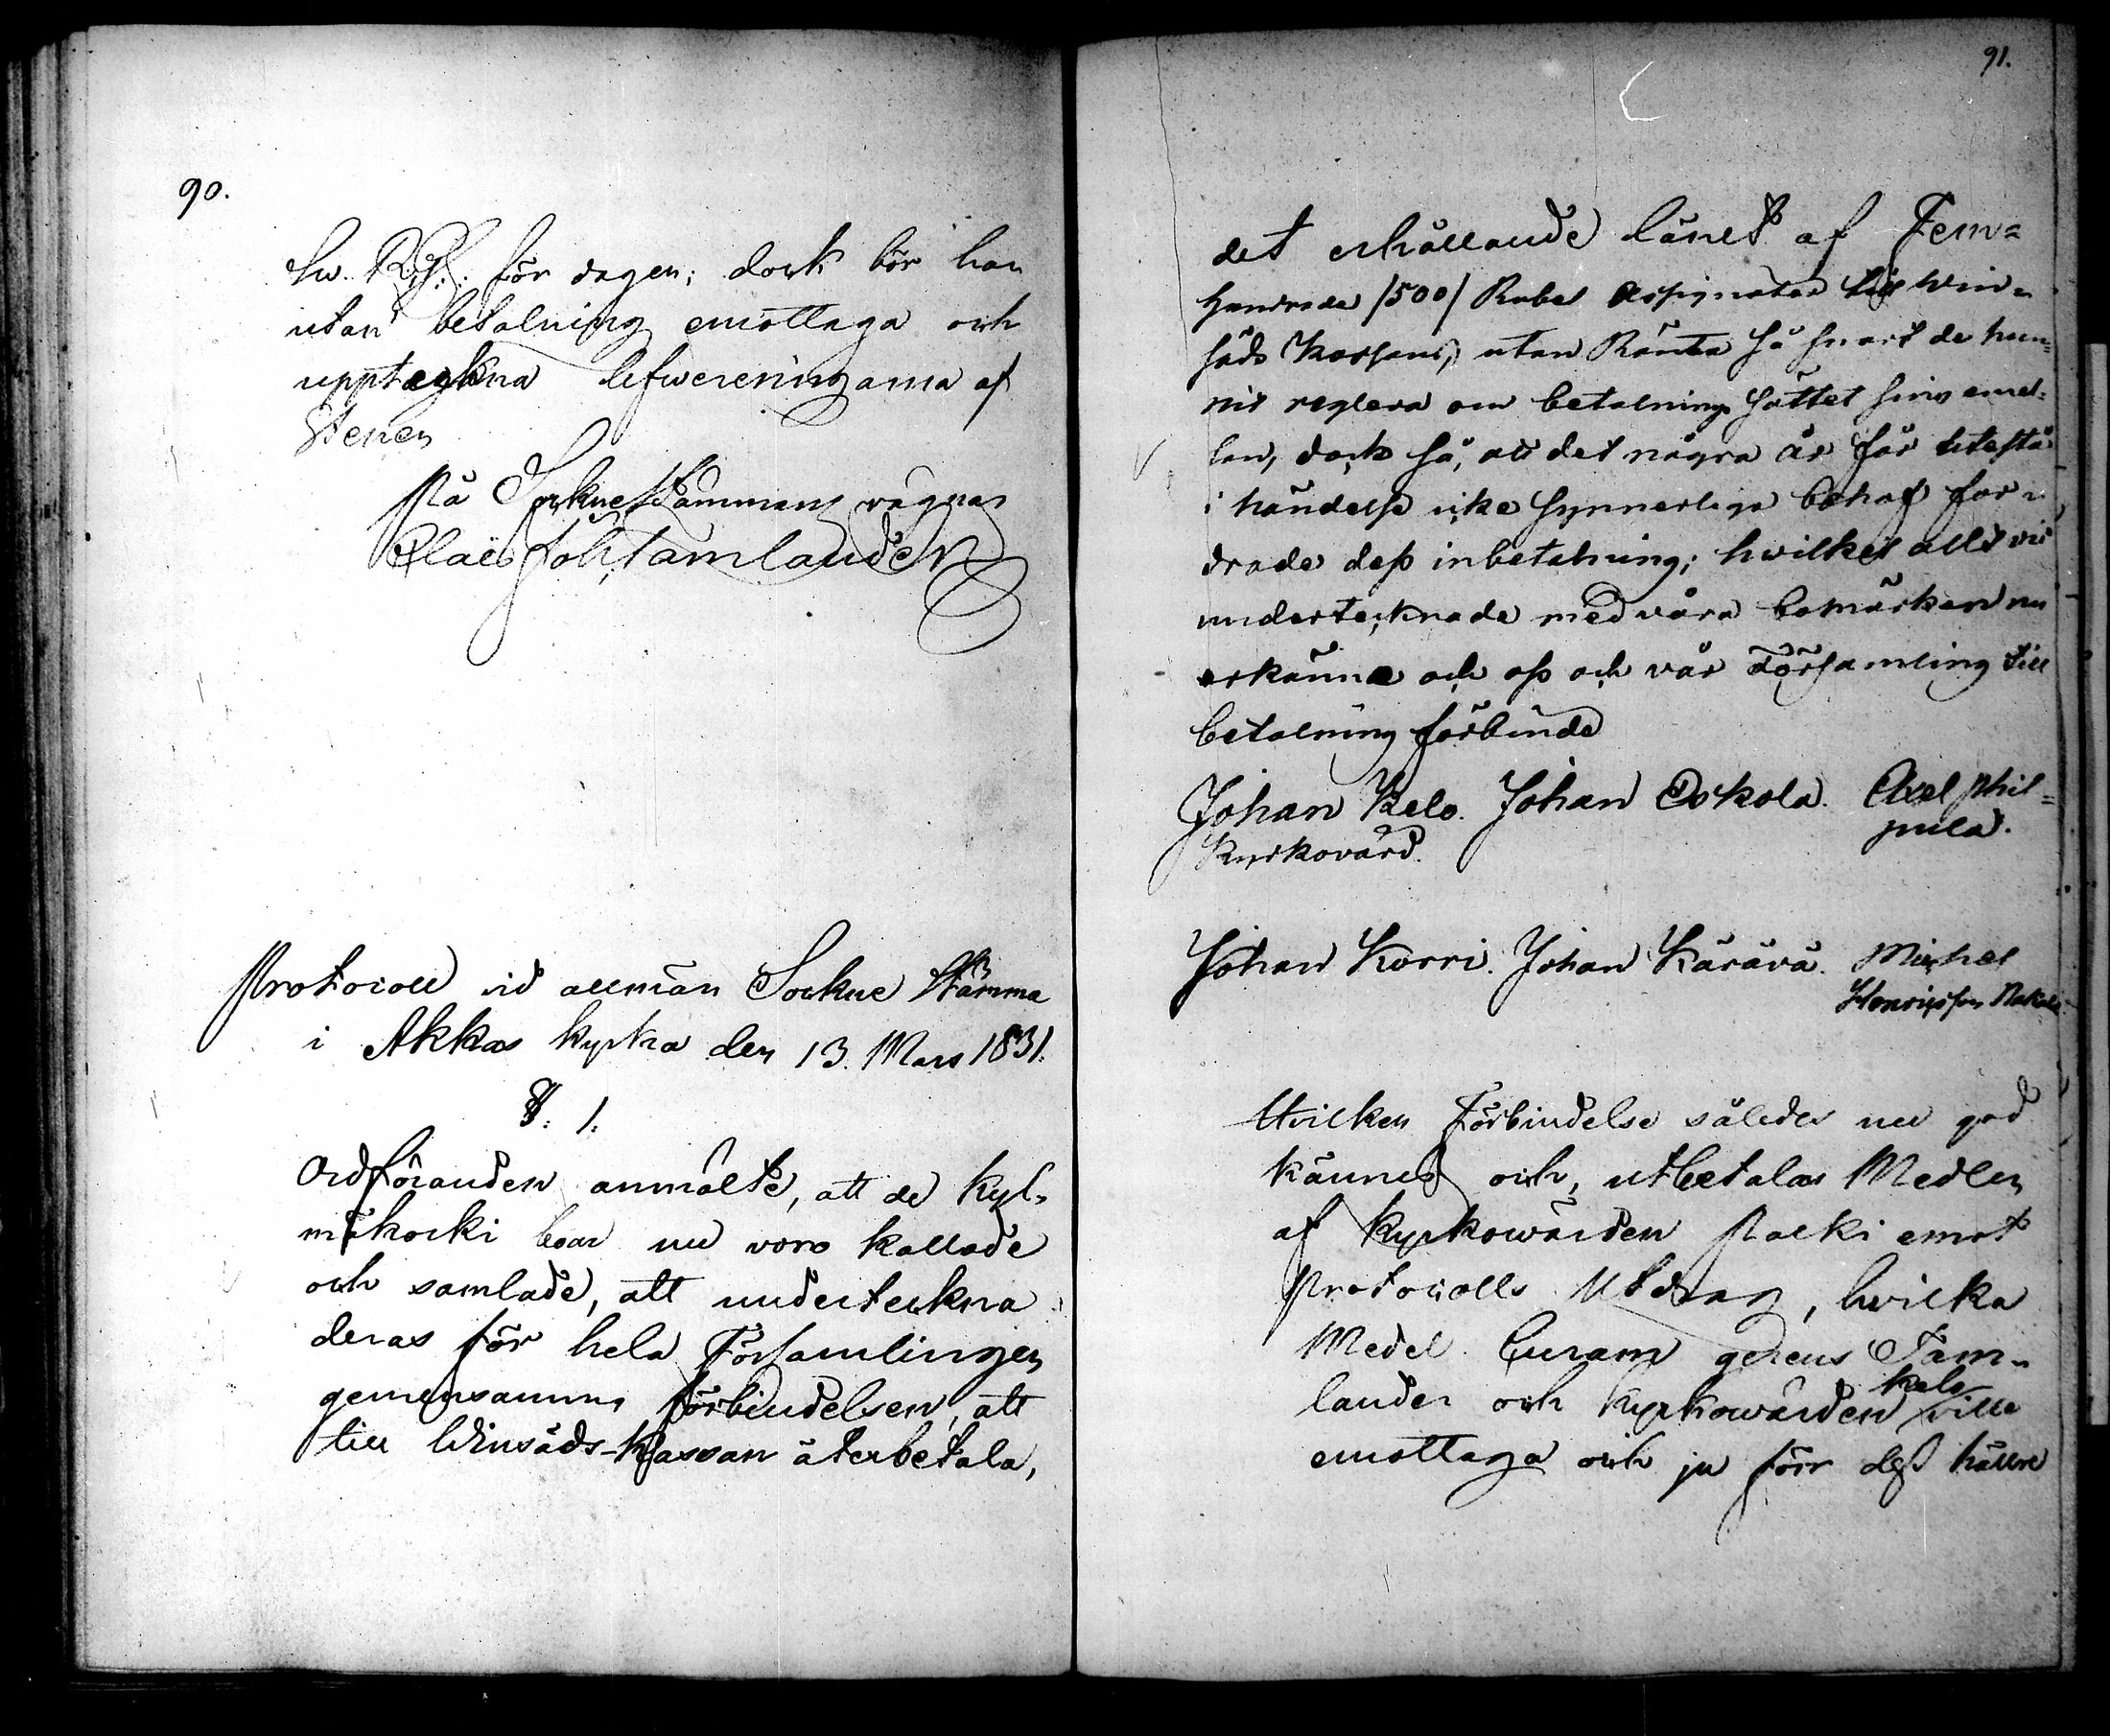 90.
för dagen; dock bör han
utan betalning emottaga och
uppteckna lefwereringarna af
Stenen
På Sockne Stämmans vägnar
Claës Joh. Tamlander
Protocoll vid allmän Sockne Stämma
i Akkas kyrka den 13. Mars 1831.
§. 1.
Ordföranden anmälte, att de Kyl-
mäkoski boar nu voro kallade
och samlade, att underteckna
deras för hela Församlingen
gemensamma förbindelsen, att
till Winsäds-Kassan återbetala,
91.
det erhållande lånet af Fem-
hundrade /500/ Rubel Assignater till Win-
säds Kassan, utan Ränta så snart de hun-
nit reglera om betalnings sättet sins emel-
lan, dock så, att det några år får utestå
i händelse icke synnerliga behof for-
drade dess inbetalning; hwilket allt vi
undertecknade med våra bomärken nu
erkänna och oss och vår Församling till
betalning förbinda
Johan Kelo. Johan Eskola. Axel Phil-
Kyrkovärd. pula.
Johan Korri. Johan Kärävä. Michel
Henricsson Nakala.
Hvilken Förbindelse således nu god
kännes och, utbetalas Medlen
af Kyrkowärden Palki emot
Protocolls Utdrag, hvilka
Medel Curam gerens Tam-
lander och Kyrkowärden Kelo ville
emottaga och ju förr dess hällre